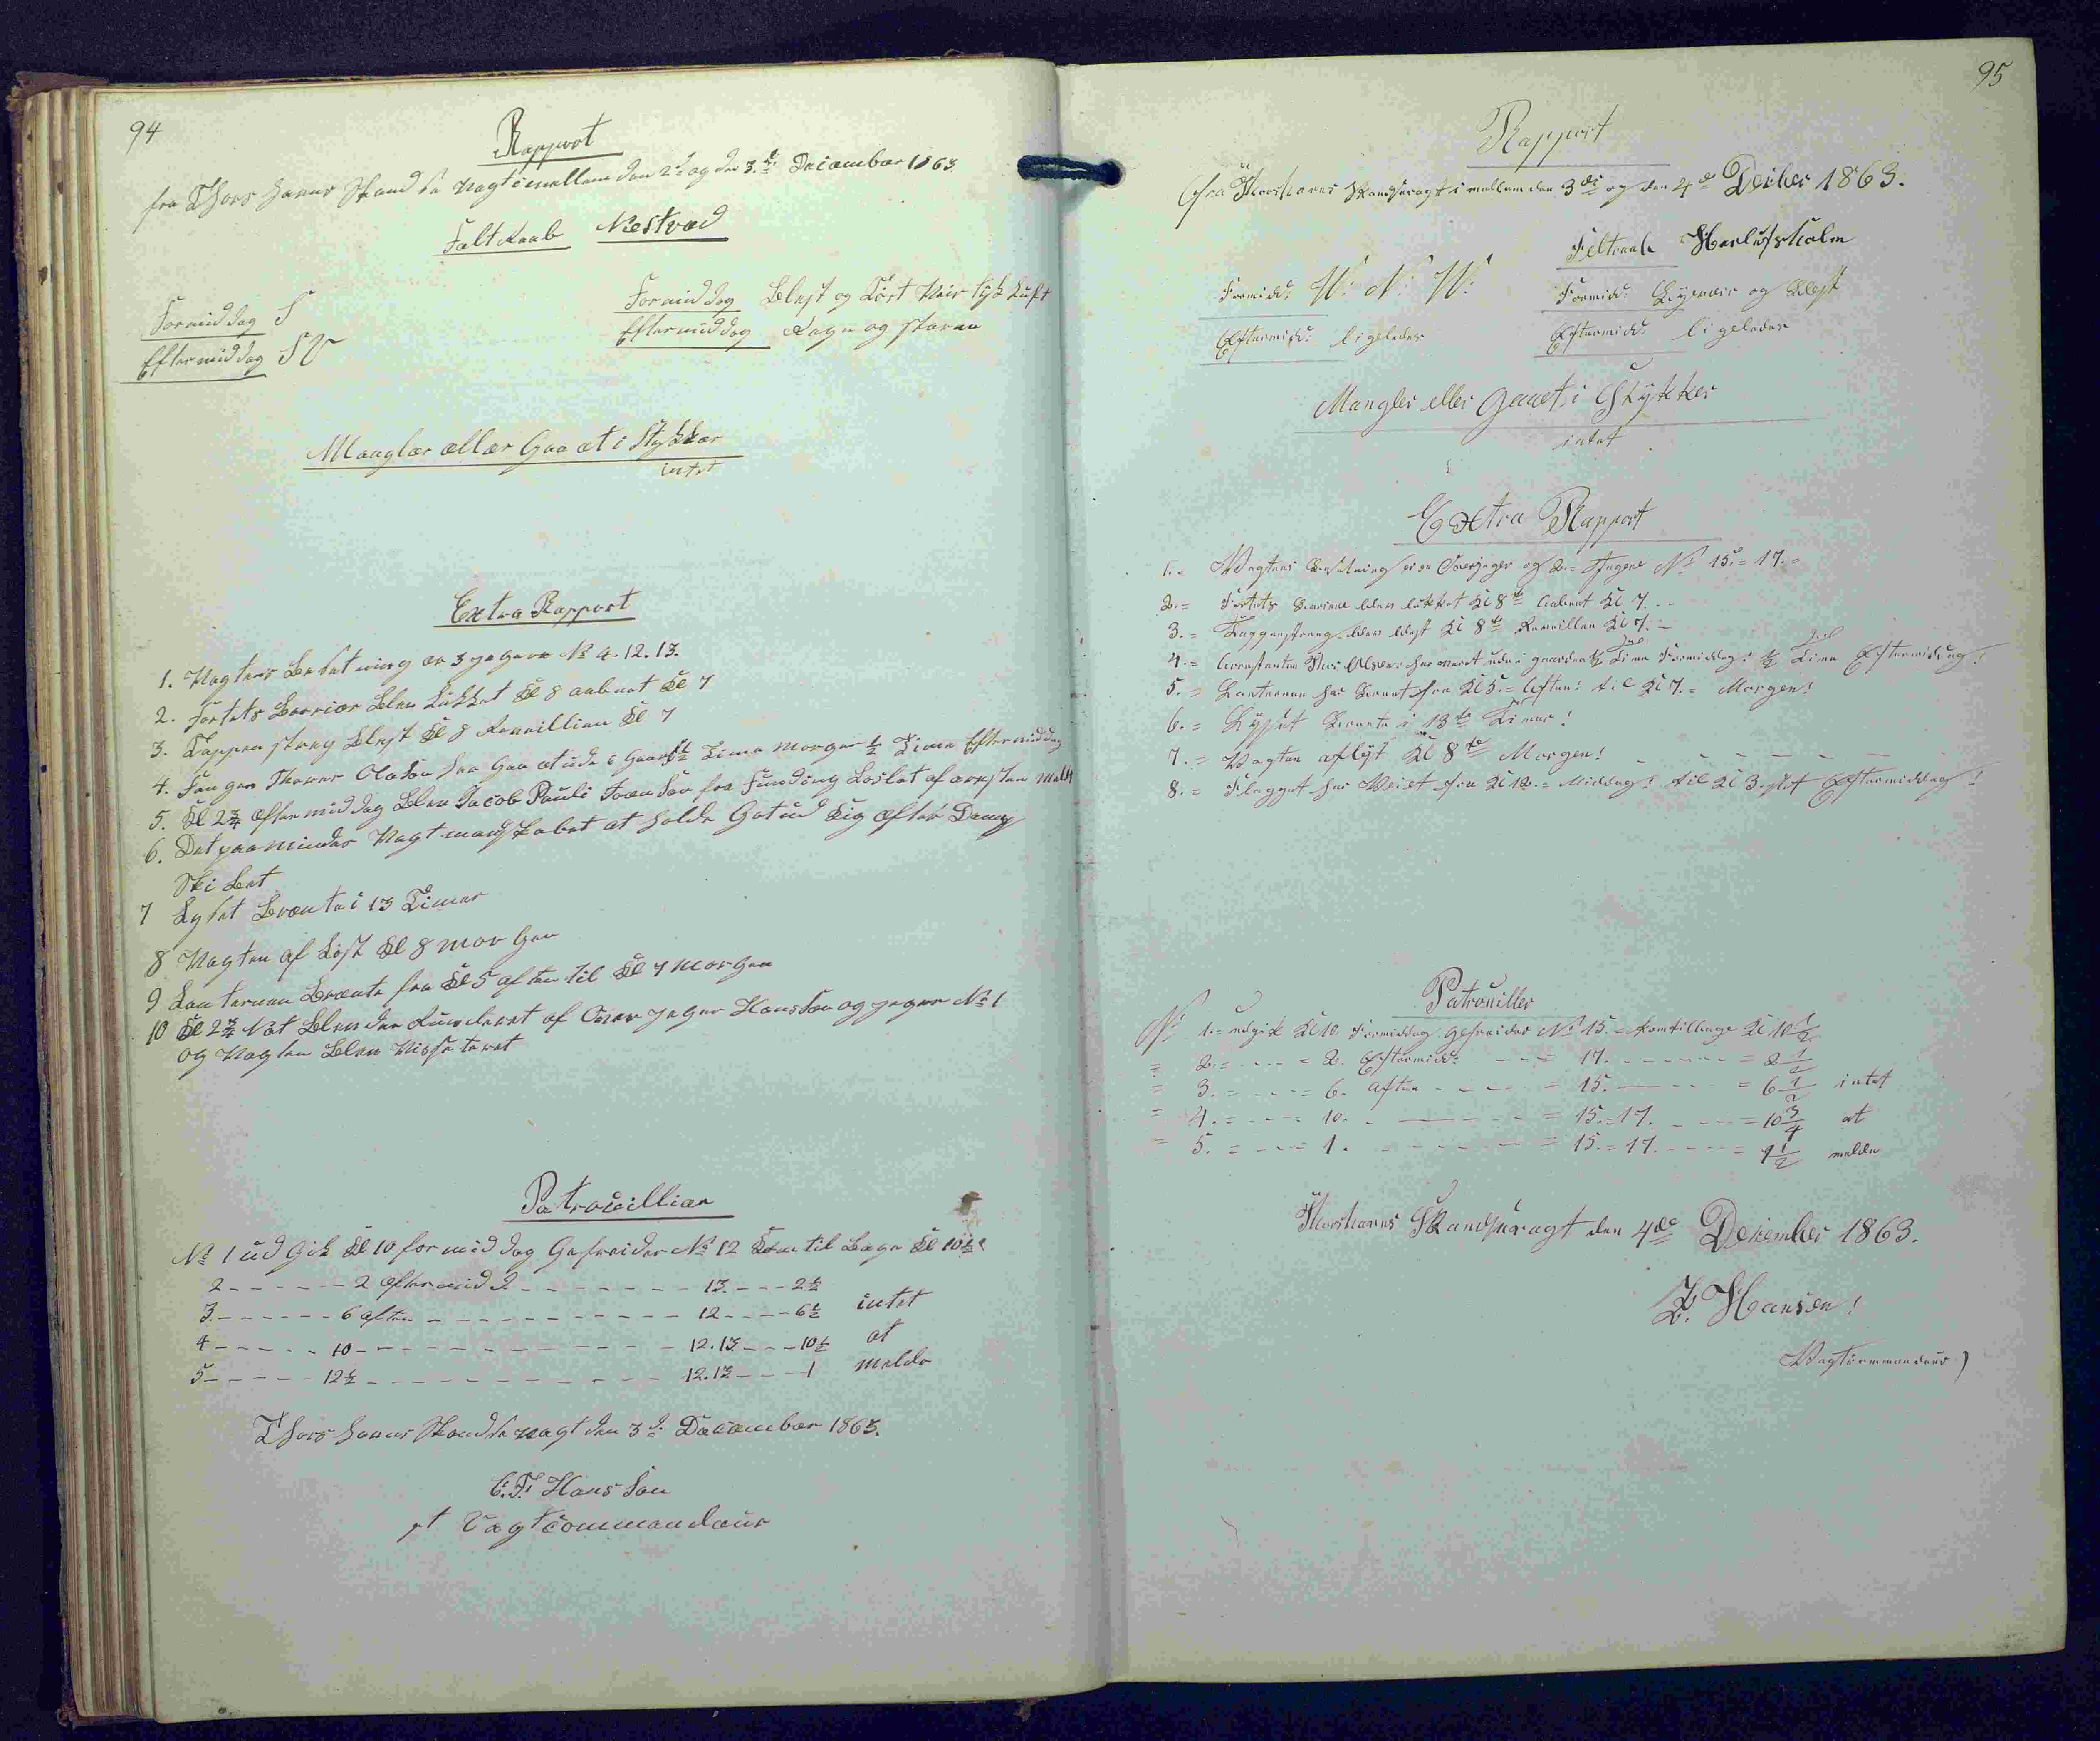 94
Rapport
fra Thorshavns Skandse Vagt imellem den 2d og den 3d December 1863
Feltraab Nestved
Formiddag S
Formiddag Blæst og Tört Veir tyk Luft
Eftermiddag SV
Eftermiddag Regn og storm
Mangler eller Gaaet i Stÿkker
intet
Extra Rapport
1. Vagtens Besetning er 3 jegere No 4. 12. 13.
2. Fortets Barrier blev Lukket Kl 8 aabnet Kl 7
3. Tappenstreg blest Kl 8 Reveillien Kl 7
4. Fangen Thomas Olesen har Gaaet ude i Gaard ½ Time morgen ½ Time Eftermiddag
5. Kl 2¾ eftermiddag blev Jacob Pauli Svendsen fra Funding Loslat af aresten
6. Det paamindes Vagtmandskabet at holde Got ud Kig efter Damp
Skibet
7 Lyset brænte i 13 Timer
8 Vagten af Löst Kl 8 morgen
9 Lanternen Brænte fra Kl 5 aften til Kl 7 morgen
10 Kl 2¾ Nat blev der Runderet af Over jeger Hansen og jeger No 1
og Vagten blev Vissiteret
Patrouillier
No 1 ud Gik Kl 10 formiddag Gefreider No 12 Kom tilbage Kl 10½
2 - - - - - - 2 eftermidd - - - - - - - 13 - - - 2½
3 - - - - - - 6 aften - - - - - - - - - 12 - - - - 6½ intet
4 - - - - - 10 - - - - - - - - - - 12.13 - - - 10½ at
5 - - - - - 12½ - - - - - - - - - - 12.13 - - - 1 melde
Thorshavns Skandse vagt den 3d December 1863.
C. F. Hansen
pt Vagtcommandeur
95
Rapport
fra Thorshavns Skandsevagt imellem den 3di og den 4de Decber 1863.
Feltraab Herlufsholm
Formidd: W: N: W:
Formidd: Bygeveir og Blæst
Eftermidd: ligeledes
Eftermidd: ligeledes
Mangler eller Gaaet i Stÿkker
intet
Extra Rapport
1. = Vagtens Besetning er en Overjeger og 2 = Jegere No 15 = 17. =
2. = Fortets Bariere blev lukket Kl 8te aabnet Kl 7. - -
3. = Tappenstreg blev blest Kl 8te Reveillen Kl 7. =
4. = Arrestanten Olesen: har været ude i gaarden ½ Time Formiddag: ½ Time Eftermiddag!
5. = Lanternen har Brent fra Kl 5. = Aften: til Kl 7. = Morgen!
6. = Lysset Brente i 13te Timer!
7. = Vagten aflöst Kl 8te Morgen!
8. = Flagget har Veiet fra Kl 12. = Middag: til Kl 3. slet Eftermiddag!
Patrouiller
No 1. = udgik Kl 10. Formiddag Gefreider No 15. = kom tilbage Kl 10½
= 2. = - - - = 2. Eftermidd: - - - = 17. - - - - - = 2½
= 3. = - - - = 6. Aften - - - - = 15. - - - - = 6½ intet
= 4. = - - - 10. - - - - - = 15. = 17. - - - = 10¾ at
= 5. = - - - 1. - - - - - = 15. = 17. - - - = 1½ melde
Thorshavns Skandsevagt den 4de December 1863.
Z. Hansen!
Vagtcommandeur